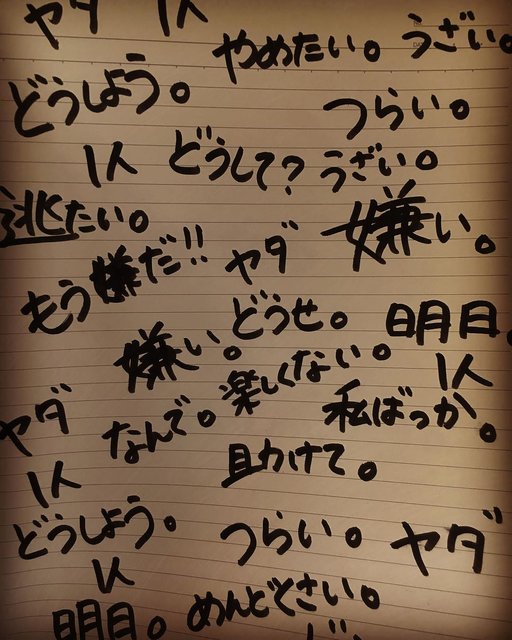 ヤダ 1人
やめたい。 うざい。
どうしよう。 つらい。
1人 どうして? うざい。
逃たい。 嫌い。
もう嫌だ!! ヤダ
どうせ。 明日。
嫌い。 楽しくない。 1人
ヤダ なんで。 私ばっか。
1人 助けて。
どうしよう。 つらい。 ヤダ
1人
明日。 めんどくさい。